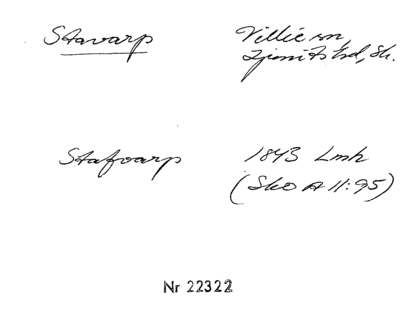 Stavarp Villie sn,
Ljunits hd, Sk.
Stafvarp 1843 Lmh
(Sko A 11:95)
Nr 22322